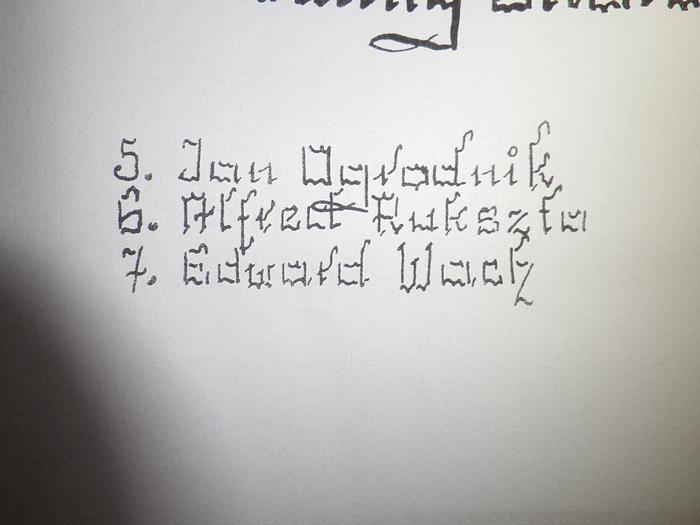 5. Jan Ogrodnik
6. Alfred Rukszta
7. Edward Wach